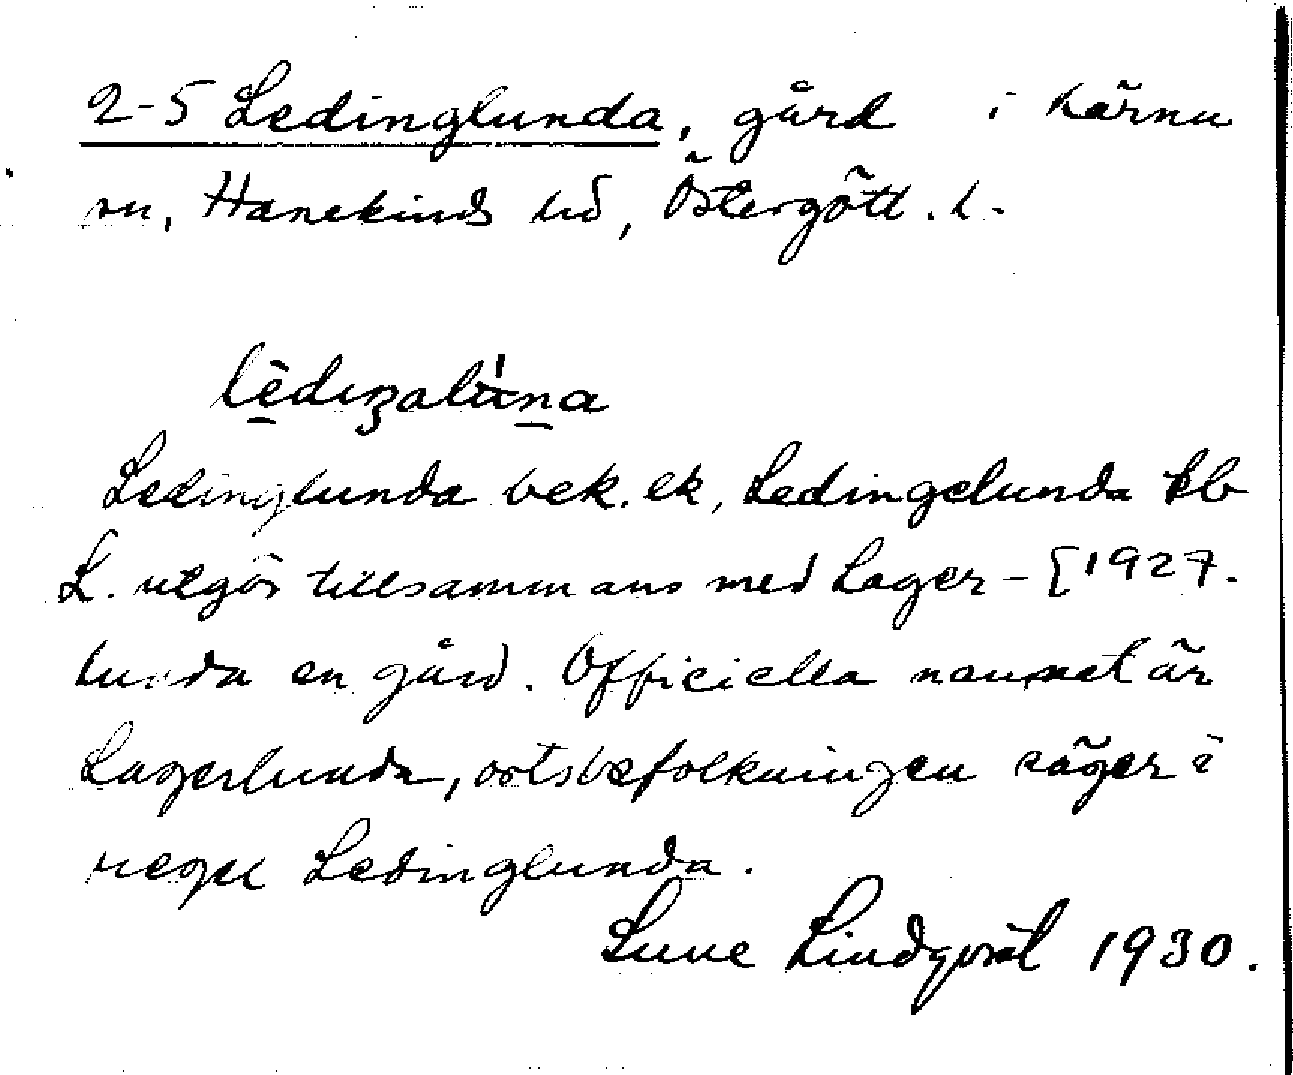 2-5 Ledinglunda, gård i Kärna
sn, Hanekinds hd, Östergötl. l.
Ledinglunda bek. ek, Ledingelunda kb
L. utgör tillsammans med Lager- [1927.
lunda en gård. Officiella namnet är
Lagerlunda, ortsbefolkningen säger i
regel Ledinglunda.
Sune Lindqvist 1930.